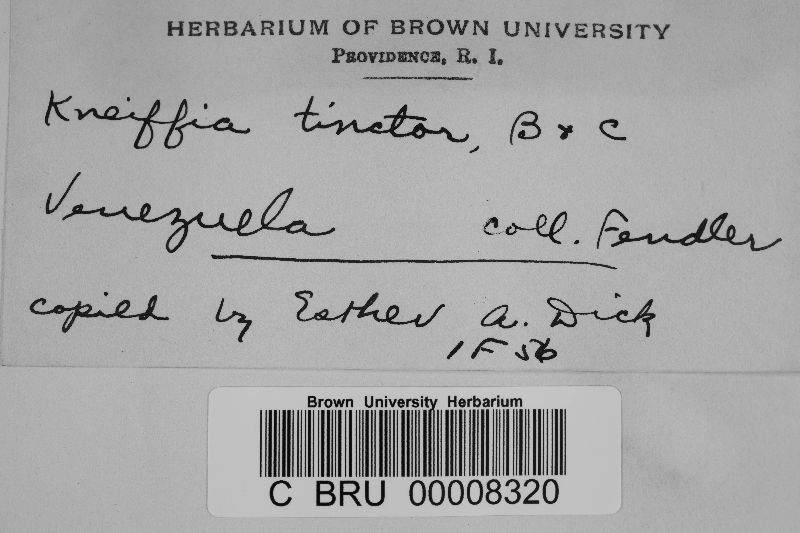 HERBARIUM OF BROWN UNIVERSITY
PROVIDENCE, R. I.
Kneiffia tinctor, B & C
Venezuela coll. Fendler
copied by Esther A. Dick
1 F 56
Brown University Herbarium
C BRU 00008320